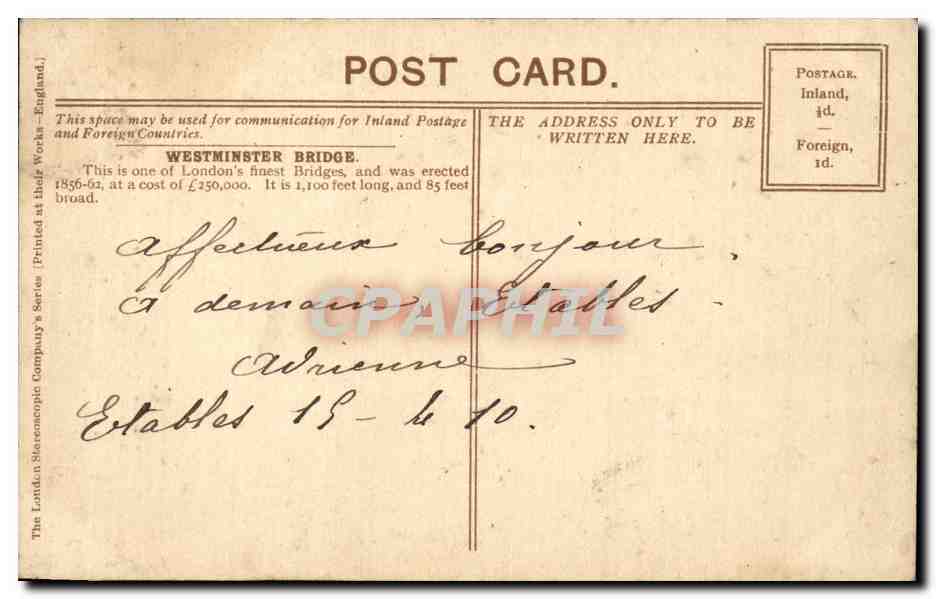 POST CARD.
POSTAGE.
Inland,
½d.
—
Foreign,
1d.
This space may be used for communication for Inland Postage
and Foreign Countries.
THE ADDRESS ONLY TO BE
WRITTEN HERE.
WESTMINSTER BRIDGE.
This is one of London's finest Bridges, and was erected
1856-62, at a cost of £250,000. It is 1,100 feet long, and 85 feet
broad.
Affectueux bonjour.
A demain, Etables -
Adrienne
Etables 15 - le 10.
CPAPHIL
The London Stereoscopic Company's Series [Printed at their Works—England.]